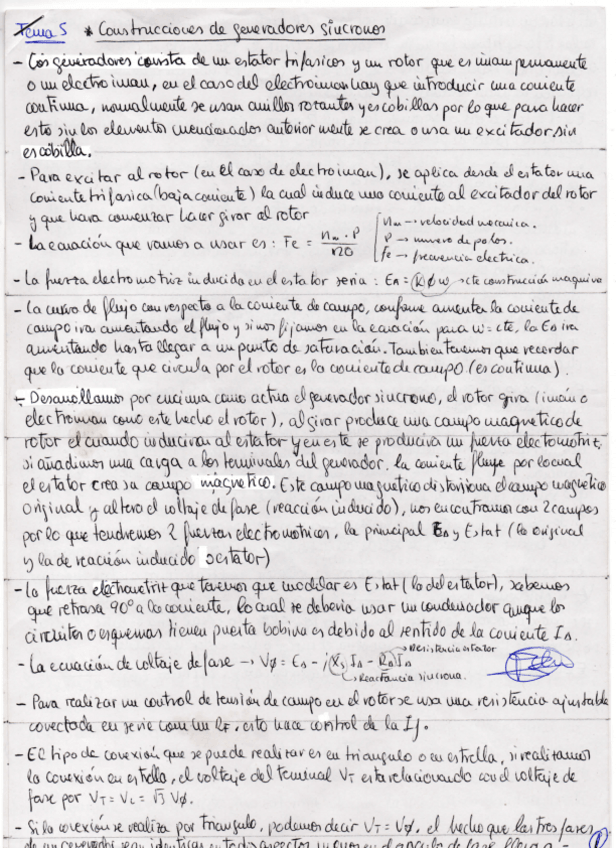 Tema 5 * Construcciones de generadores síncronos
- Los generadores consta de un estator trifasicos y un rotor que es iman permanente
o un electroiman, en el caso del electroiman hay que introducir una corriente
continua, normalmente se usan anillos rotantes y escobillas por lo que para hacer
esto sin los elementos mencionados anteriormente se crea o usa un excitador sin
escobilla.
- Para excitar al rotor (en el caso de electroiman), se aplica desde el estator una
corriente trifasica (baja corriente) la cual induce una corriente al excitador del rotor
y que hara comenzar hacer girar al rotor
- La ecuación que vamos a usar es: Fe = nm · P / 120
nm → velocidad mecanica.
P → numero de polos.
fe → frecuencia electrica.
- La fuerza electromotriz inducida en el estator seria: EA = K ϕ ω → cte construcción maquina
- La curva de flujo con respecto a la corriente de campo, conforme aumenta la corriente de
campo ira aumentando el flujo y si nos fijamos en la ecuación para ω = cte, la EA ira
aumentando hasta llegar a un punto de saturación. Tambien tenemos que recordar
que la corriente que circula por el rotor es la corriente de campo (es continua).
- Desarrollamos por encima como actua el generador sincrono, el rotor gira (imán o
electroiman como este hecho el rotor), al girar produce una campo magnetico de
rotor el cuando inducirar al estator y en este se producira un fuerza electromotriz,
si añadimos una carga a los terminales del generador, la corriente fluye por lo cual
el estator crea su campo magnético. Este campo magnetico distorsiona el campo magnético
original y altera el voltaje de fase (reacción inducido), nos encontramos con 2 campos
por lo que tendremos 2 fuerzas electromotrices, la principal EA y Estat (la original
y la de reacción inducido estator)
- La fuerza electromotriz que tenemos que modelar es Estat (la del estator), sabemos
que retrasa 90º a la corriente, lo cual se deberia usar un condensador aunque los
circuitos o esquemas tienen puesta bobina es debido al sentido de la corriente IA.
- La ecuación de voltaje de fase → Vϕ = EA - j Xs IA - RA IA
→ Resistencia estator
→ Reactancia sincrona.
- Para realizar un control de tensión de campo en el rotor se usa una resistencia ajustable
conectada en serie con un LF, esto hace control de la If.
- El tipo de conexión que se puede realizar es en triangulo o en estrella, si realizamos
la conexión en estrella, el voltaje del terminal VT esta relacionando con el voltaje de
fase por VT = VL = √3 Vϕ.
- Si la conexión se realiza por triangulo, podemos decir VT = Vϕ, el hecho que las tres fases